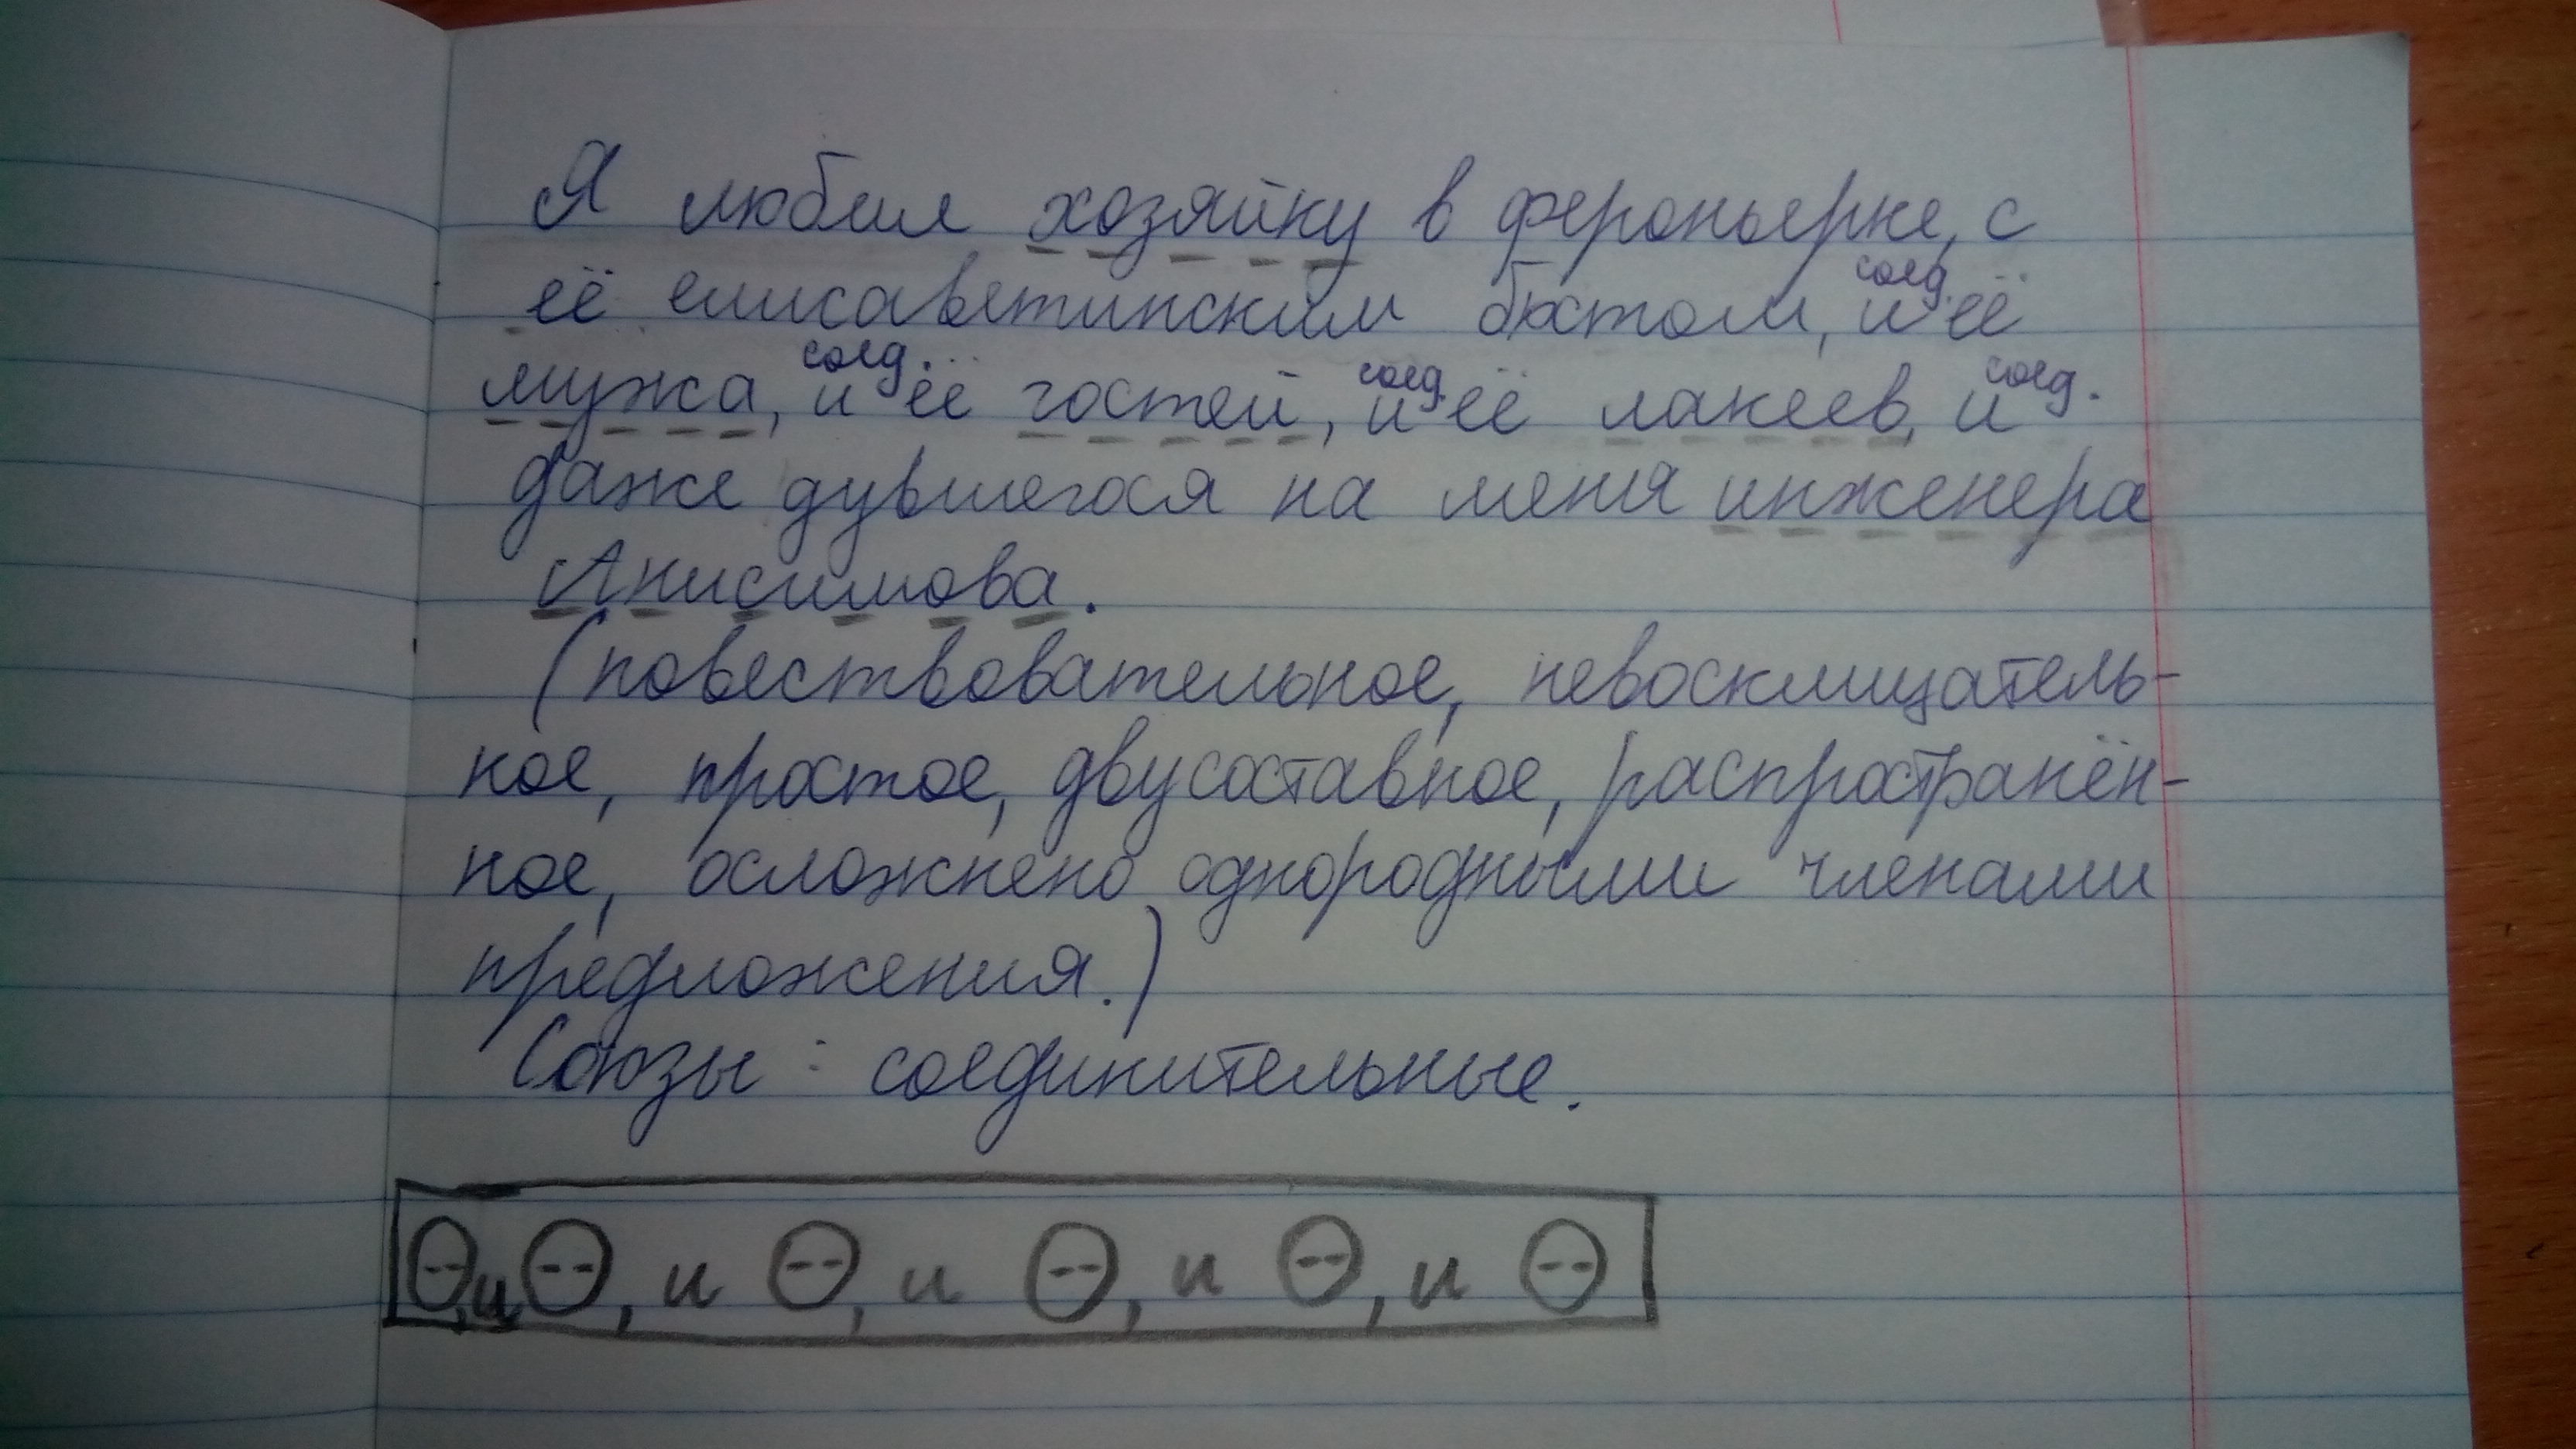 Я любил хозяйку в фероньерке, с
её елисаветинским бюстом, и её
соед.
мужа, и её гостей, и её лакеев, и
соед. соед. соед.
даже дувшегося на меня инженера
Анисимова.
(повествовательное, невосклицатель-
ное, простое, двусоставное, распространён-
ное, осложнено однородными членами
предложения.)
Союзы: соединительные.
, и , и , и , и , и